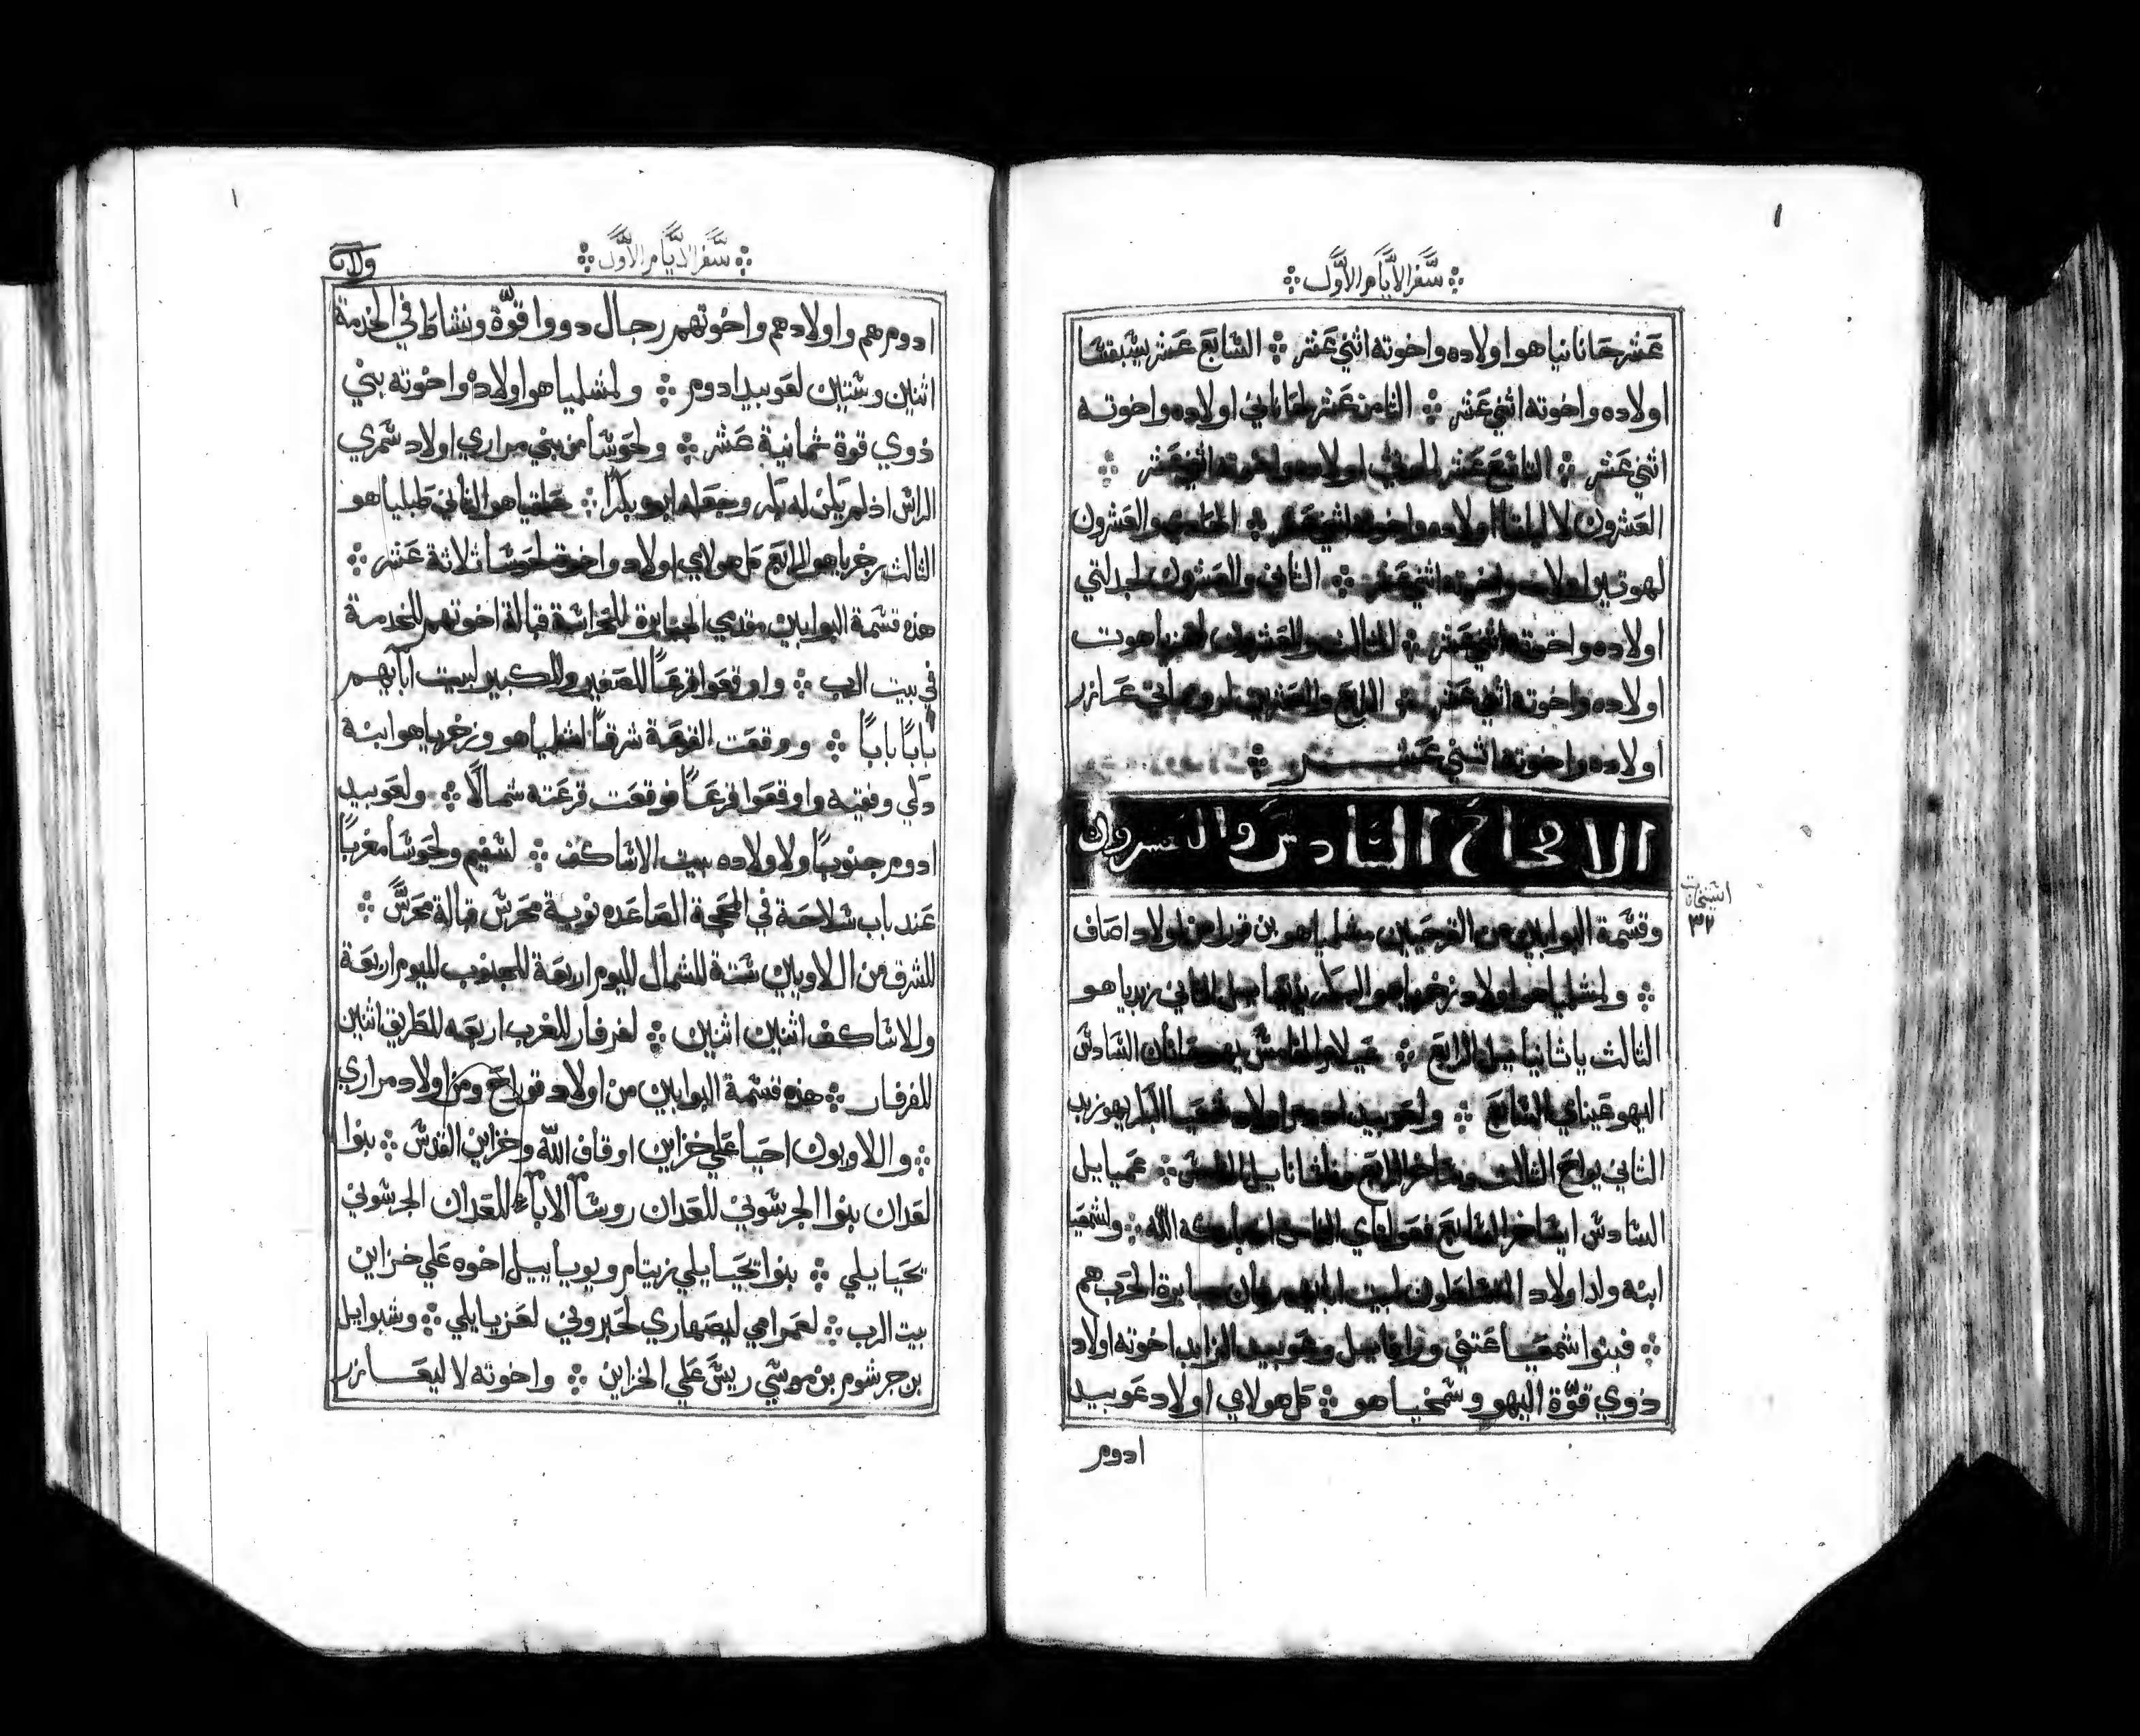 سفر الأيام الأول
عشر حانانياهو اولاده واخوته اثني عشر ܀ السابع عشر يشبقشا
اولاده واخوته اثني عشر ܀ الثامن عشر لحاناني اولاده واخوته
اثني عشر ܀ التاسع عشر اولاده واخوته اثني عشر ܀
العشرون لالياتا اولاده واخوته اثني عشر ܀ الحادي والعشرون
لهوتير اولاده واخوته اثني عشر ܀ الثاني والعشرون لجدلتي
اولاده واخوته اثني عشر ܀ الثالث والعشرون لمحزياهوت
اولاده واخوته اثني عشر الرابع والعشرين لرومامتي عازر
اولاده واخوته اثني عشـــر ܀
الاصحاح السادس والعشرون
وقسمة البوابين من القرحيين مشلمياهو بن قورا من اولاد اصاف
܀ ولمشلمياهو اولاد زخرياهو البكر الثاني زبدياهو
الثالث ياثانيايل الرابع ܀ عيلام الخامس يهوحانان السادس
اليهوعيناي السابع ܀ ولعوبيد ادوم اولاد شمعيا البكر يهوزبد
الثاني يواح الثالث الرابع وناثانايل الخامس ܀ عميايل
السادس ايشاخر السابع فعولتاي الثامن اذ باركه الله ܀ ولشمعيا
ابنه ولدا اولاد المتسلطون لبيت جبابرة الحرب هم
܀ فبنوا شمعيا عتني ورافاييل وعوبيد الزابد اخوته اولاد
ذوي قوّة اليهو وسمخياهو ܀ كل هولاي اولاد عوبيد
ادوم
استيخانات
٣٢
سفر الأيام الأول
ادوم هم واولادهم واخوتهم رجال ذووا قوّة ونشاط في الخدمة
اثنين وستين لعوبيد ادوم ܀ ولمشلمياهو اولاده واخوته بني
ذوي قوة ثمانية عشر ܀ ولحوسا من بني مراري اولاد شمري
الراس اذ لم يكن له بكر وجعله ابوه بكرًا ܀ حلقياهو الثاني طبلياهو
الثالث زخرياهو الرابع كل هولاي اولاد واخوة لحوسا ثلاثة عشر ܀
هذه قسمة البوابين مقدمي الجبابرة للحراسة قبالة اخوتهم للخدمة
في بيت الرب ܀ واوقعوا قرعًا للصغير وللكبير لبيت آبايهم
بابًا بابًا ܀ ووقعت القرعة شرقًا لشلمياهو وزخرياهو ابنه
دكي وفقيه واوقعوا قرعًا فوقعت قرعته شمالًا ܀ ولعوبيد
ادوم جنوبًا ولاولاده بيت الاساكف ܀ لشفيم ولحوسا مغربًا
عند باب شلاحة في المحجة الصاعده نوبة محرس قبالة محرس ܀
للشرق من اللاويين ستة للشمال لليوم اربعة للجنوب لليوم اربعة
وللاساكف اثنين اثنين ܀ لفرفار للغرب اربعه للطريق اثنين
للفرفار ܀ هذه قسمة البوابين من اولاد قوراح ومن اولاد مراري
܀ واللاويون احيا علي خزاين اوقاف الله وخزاين القدس ܀ بنوا
لعدان بنوا الجرشوني للعدان روسا الآباء للعدان الجرشوني
يحيايلي ܀ بنوا يحيايلي زيتام ويوياييل اخوه علي خزاين
بيت الرب ܀ لعمرامي ليصهاري لحبروني لعزيايلي ܀ وشبوايل
بن جرشوم بن موسي ريس علي الخزاين ܀ واخوته لاليعـازر